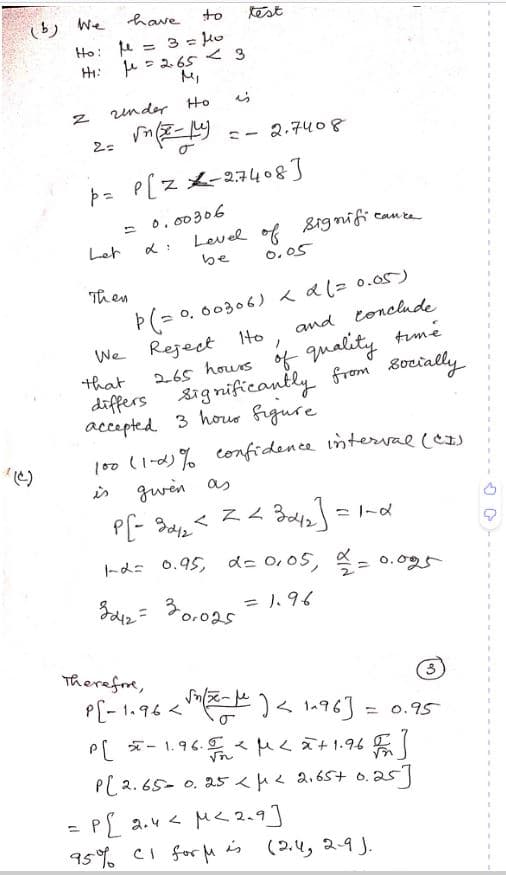 (b) We have to test
H0: μ = 3 = μ0
H1: μ = 2.65 < 3
μ1
Z under H0 is
Z = √n(x̄ - μ) / σ = - 2.7408
p = P[Z < -2.7408]
= 0.00306
Let α: Level of significance
be 0.05
Then
p(= 0.00306) < α(= 0.05)
We Reject H0, and conclude
that 265 hours of quality time
differs significantly from socially
accepted 3 hour figure
(c) 100 (1-α)% confidence interval (CI)
is given as
P[- 3α/2 < Z < 3α/2] = 1-α
1-α = 0.95, α = 0.05, α/2 = 0.025
3α/2 = 30.025 = 1.96
3
Therefore,
P[-1.96 < √n(x̄ - μ / σ) < 1.96] = 0.95
P[x̄ - 1.96. σ/√n < μ < x̄ + 1.96 σ/√n]
P[2.65 - 0.25 < μ < 2.65 + 0.25]
= P[2.4 < μ < 2.9]
95% CI for μ is (2.4, 2.9).